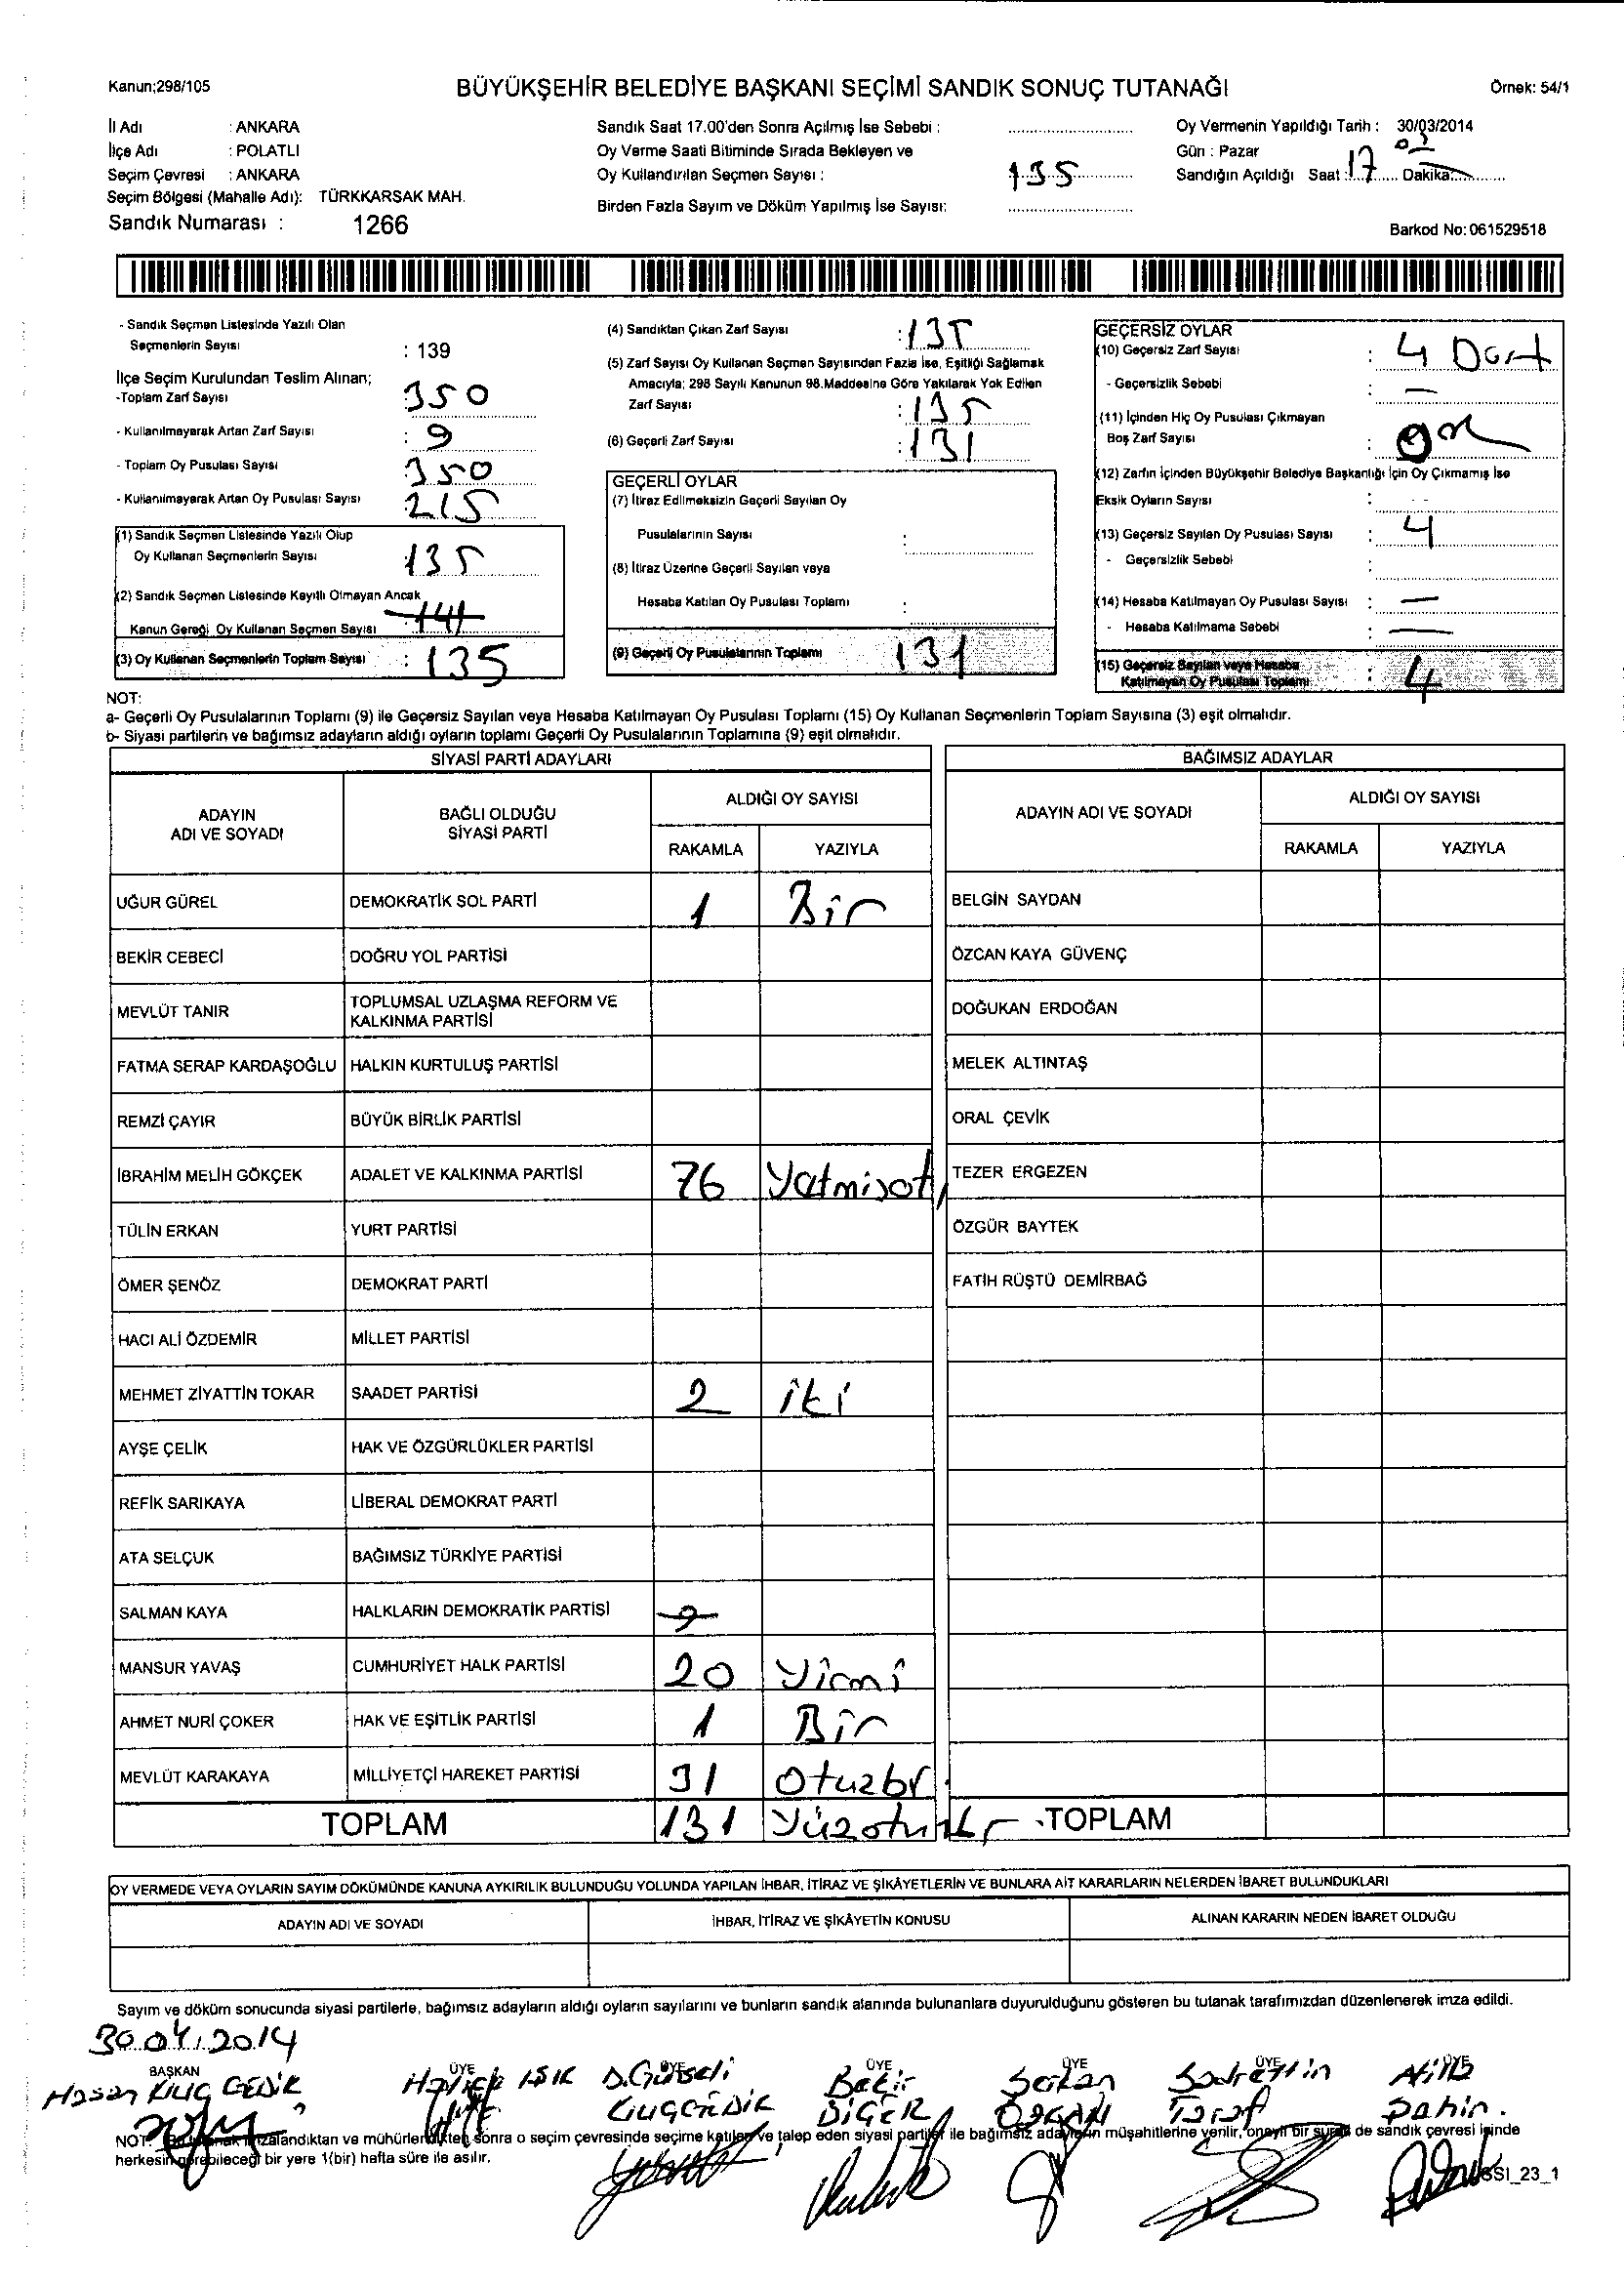 Kanun;298/105
BÜYÜKŞEHİR BELEDİYE BAŞKANI SEÇİMİ SANDIK SONUÇ TUTANAĞI
Örnek: 54/1
İl Adı : ANKARA
İlçe Adı : POLATLI
Seçim Çevresi : ANKARA
Seçim Bölgesi (Mahalle Adı): TÜRKKARSAK MAH.
Sandık Numarası : 1266
Sandık Saat 17.00'den Sonra Açılmış İse Sebebi :
Oy Verme Saati Bitiminde Sırada Bekleyen ve
Oy Kullandırılan Seçmen Sayısı : 135
Birden Fazla Sayım ve Döküm Yapılmış İse Sayısı:
Oy Vermenin Yapıldığı Tarih : 30/03/2014
Gün : Pazar
Sandığın Açıldığı Saat : 17 Dakika
Barkod No: 061529518
- Sandık Seçmen Listesinde Yazılı Olan
Seçmenlerin Sayısı : 139
İlçe Seçim Kurulundan Teslim Alınan;
-Toplam Zarf Sayısı : 350
- Kullanılmayarak Artan Zarf Sayısı : 9
- Toplam Oy Pusulası Sayısı 350
- Kullanılmayarak Artan Oy Pusulası Sayısı 215
(1) Sandık Seçmen Listesinde Yazılı Olup
Oy Kullanan Seçmenlerin Sayısı : 135
(2) Sandık Seçmen Listesinde Kayıtlı Olmayan Ancak
Kanun Gereği Oy Kullanan Seçmen Sayısı
(3) Oy Kullanan Seçmenlerin Toplam Sayısı : 135
(4) Sandıktan Çıkan Zarf Sayısı : 135
(5) Zarf Sayısı Oy Kullanan Seçmen Sayısından Fazla İse, Eşitliği Sağlamak
Amacıyla; 298 Sayılı Kanunun 98.Maddesine Göre Yakılarak Yok Edilen
Zarf Sayısı : 135
(6) Geçerli Zarf Sayısı : 131
GEÇERLİ OYLAR
(7) İtiraz Edilmeksizin Geçerli Sayılan Oy
Pusulalarının Sayısı :
(8) İtiraz Üzerine Geçerli Sayılan veya
Hesaba Katılan Oy Pusulası Toplamı :
(9) Geçerli Oy Pusulalarının Toplamı 131
GEÇERSİZ OYLAR
(10) Geçersiz Zarf Sayısı : 4 Dört
- Geçersizlik Sebebi : —
(11) İçinden Hiç Oy Pusulası Çıkmayan
Boş Zarf Sayısı :
(12) Zarfın İçinden Büyükşehir Belediye Başkanlığı İçin Oy Çıkmamış İse
Eksik Oyların Sayısı :
(13) Geçersiz Sayılan Oy Pusulası Sayısı : 4
- Geçersizlik Sebebi :
(14) Hesaba Katılmayan Oy Pusulası Sayısı : —
- Hesaba Katılmama Sebebi : —
(15) Geçersiz Sayılan veya Hesaba
Katılmayan Oy Pusulası Toplamı : 4
NOT:
a- Geçerli Oy Pusulalarının Toplamı (9) ile Geçersiz Sayılan veya Hesaba Katılmayan Oy Pusulası Toplamı (15) Oy Kullanan Seçmenlerin Toplam Sayısına (3) eşit olmalıdır.
b- Siyasi partilerin ve bağımsız adayların aldığı oyların toplamı Geçerli Oy Pusulalarının Toplamına (9) eşit olmalıdır.
SİYASİ PARTİ ADAYLARI
ADAYIN
ADI VE SOYADI
BAĞLI OLDUĞU
SİYASİ PARTİ
ALDIĞI OY SAYISI
RAKAMLA YAZIYLA
UĞUR GÜREL DEMOKRATİK SOL PARTİ 1 Bir
BEKİR CEBECİ DOĞRU YOL PARTİSİ
MEVLÜT TANIR TOPLUMSAL UZLAŞMA REFORM VE
KALKINMA PARTİSİ
FATMA SERAP KARDAŞOĞLU HALKIN KURTULUŞ PARTİSİ
REMZİ ÇAYIR BÜYÜK BİRLİK PARTİSİ
İBRAHİM MELİH GÖKÇEK ADALET VE KALKINMA PARTİSİ 76 Yatmisatı
TÜLİN ERKAN YURT PARTİSİ
ÖMER ŞENÖZ DEMOKRAT PARTİ
HACI ALİ ÖZDEMİR MİLLET PARTİSİ
MEHMET ZİYATTİN TOKAR SAADET PARTİSİ 2 iki
AYŞE ÇELİK HAK VE ÖZGÜRLÜKLER PARTİSİ
REFİK SARIKAYA LİBERAL DEMOKRAT PARTİ
ATA SELÇUK BAĞIMSIZ TÜRKİYE PARTİSİ
SALMAN KAYA HALKLARIN DEMOKRATİK PARTİSİ
MANSUR YAVAŞ CUMHURİYET HALK PARTİSİ 20 Yirmi
AHMET NURİ ÇOKER HAK VE EŞİTLİK PARTİSİ 1 Bir
MEVLÜT KARAKAYA MİLLİYETÇİ HAREKET PARTİSİ 31 Otuzbr
TOPLAM 131 Yüzotuzbr
BAĞIMSIZ ADAYLAR
ADAYIN ADI VE SOYADI
ALDIĞI OY SAYISI
RAKAMLA YAZIYLA
BELGİN SAYDAN
ÖZCAN KAYA GÜVENÇ
DOĞUKAN ERDOĞAN
MELEK ALTINTAŞ
ORAL ÇEVİK
TEZER ERGEZEN
ÖZGÜR BAYTEK
FATİH RÜŞTÜ DEMİRBAĞ
TOPLAM
OY VERMEDE VEYA OYLARIN SAYIM DÖKÜMÜNDE KANUNA AYKIRILIK BULUNDUĞU YOLUNDA YAPILAN İHBAR, İTİRAZ VE ŞİKÂYETLERİN VE BUNLARA AİT KARARLARIN NELERDEN İBARET BULUNDUKLARI
ADAYIN ADI VE SOYADI İHBAR, İTİRAZ VE ŞİKÂYETİN KONUSU ALINAN KARARIN NEDEN İBARET OLDUĞU
Sayım ve döküm sonucunda siyasi partilerle, bağımsız adayların aldığı oyların sayılarını ve bunların sandık alanında bulunanlara duyurulduğunu gösteren bu tutanak tarafımızdan düzenlenerek imza edildi.
30.04.2014
BAŞKAN ÜYE ÜYE ÜYE ÜYE ÜYE ÜYE
Hasan KILIÇ GEDİK
IŞIK
Bekir DİĞER
Serkan
Sadrettin
Atilla Şahin.
NOT: Bu tutanak imzalandıktan ve mühürlendikten sonra o seçim çevresinde seçime katılan ve talep eden siyasi partiler ile bağımsız adayların müşahitlerine verilir, onaylı bir sureti de sandık çevresi içinde
herkesin görebileceği bir yere 1(bir) hafta süre ile asılır.
SSI_23_1